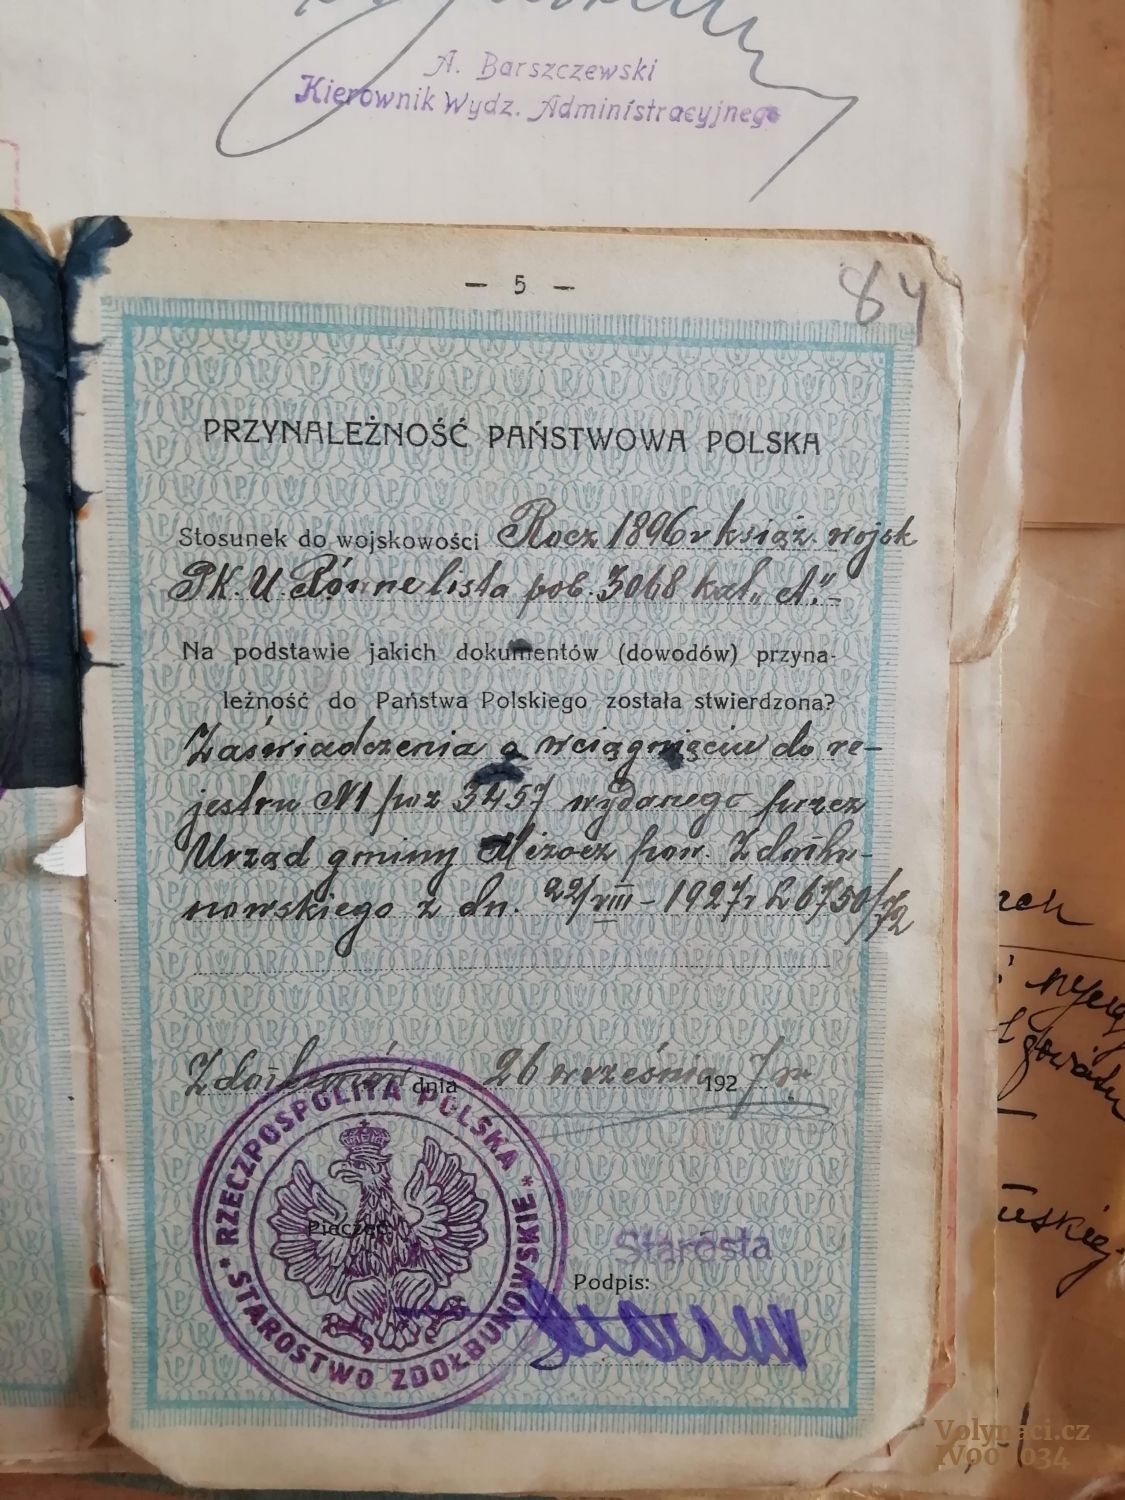 A. Barszczewski
Kierownik Wydz. Administracyjnego
— 5 —
84
PRZYNALEŻNOŚĆ PAŃSTWOWA POLSKA
Stosunek do wojskowości Rocz 1896 r książ. wojsk
P.K.U. Równe lista pob. 3068 kat. "A".-
Na podstawie jakich dokumentów (dowodów) przyna-
leżność do Państwa Polskiego została stwierdzona?
Zaświadczenia o wciągnięciu do re-
jestru N1 poz 3457 wydanego przez
Urząd gminy Mizocz pow. Zdołbu-
nowskiego z dn. 22/VIII - 1927 r L 6750/
Zdołbunów dnia 26 września 1927 r.
RZECZPOSPOLITA POLSKA
* STAROSTWO ZDOŁBUNOWSKIE *
Pieczęć
Starosta
Podpis:
Volynaci.cz